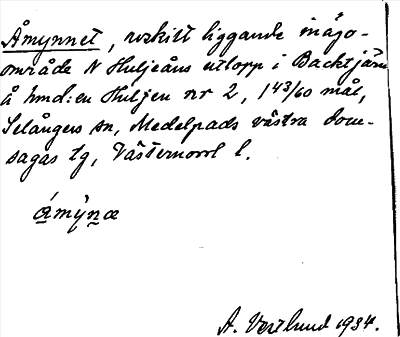 Åmynnet, enskilt liggande inägo-
område N Huljeåns utlopp i Backtjärn
å hmd: en Huljen nr 2, 1 43/60 mål,
Selångers sn, Medelpads västra dom-
sagas tg, Västernorrl l.
ámỳnæ
A. Vestlund 1934.